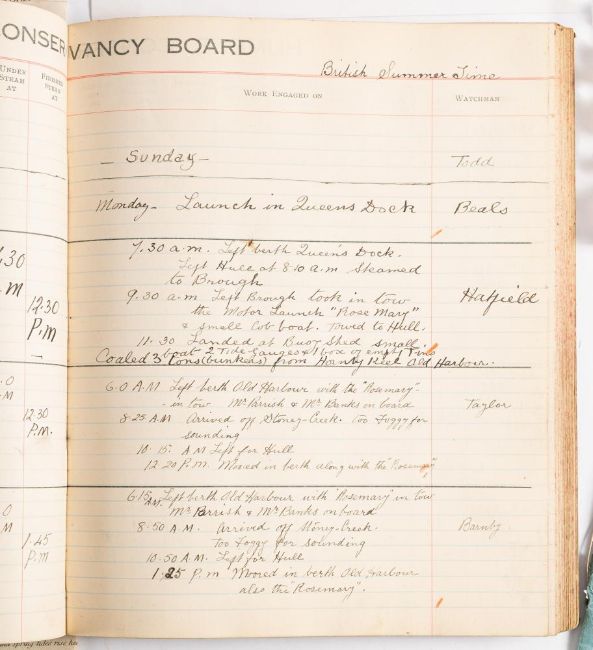 ONSERVANCY BOARD
British Summer Time
UNDER STEAM AT
FINISHED STEAM AT
WORK ENGAGED ON
WATCHMAN
— Sunday —
Todd
Monday – Launch in Queens Dock
Beals
7.30 a.m. Left berth Queen's Dock.
Left Hull at 8.10 a.m Steamed
to Brough
9.30 a.m Left Brough took in tow
the Motor Launch "Rose Mary"
& small Cob boat. Towed to Hull.
Hatfield
11.30 Landed at Buoy Shed small
boat 2 Tide Gauges & 1 box of empty Tins
Coaled 3 Tons (bunkers) from Old Harbour.
.30
m
12.30
P.m
—
6.0 A.M Left berth Old Harbour with the "Rosemary"
in tow Mr Parrish & Mr Banks on board
Taylor
8.25 A.M Arrived off Stoney-Creek. too foggy for
sounding
10.15. A M Left for Hull
12.20 P.M. Moored in berth along with the "Rosemary"
.0
M
12.30
P.M.
6.15 A.M. Left berth Old Harbour with "Rosemary" in tow
Mr Parrish & Mr Banks on board
8.50 A.M. Arrived off Stoney-Creek.
Too foggy for sounding
Barnby
10.50 A.M. Left for Hull
1.25 P.m Moored in berth Old Harbour
also the "Rosemary".
.0
M
1.45
P.m
spring tides rise